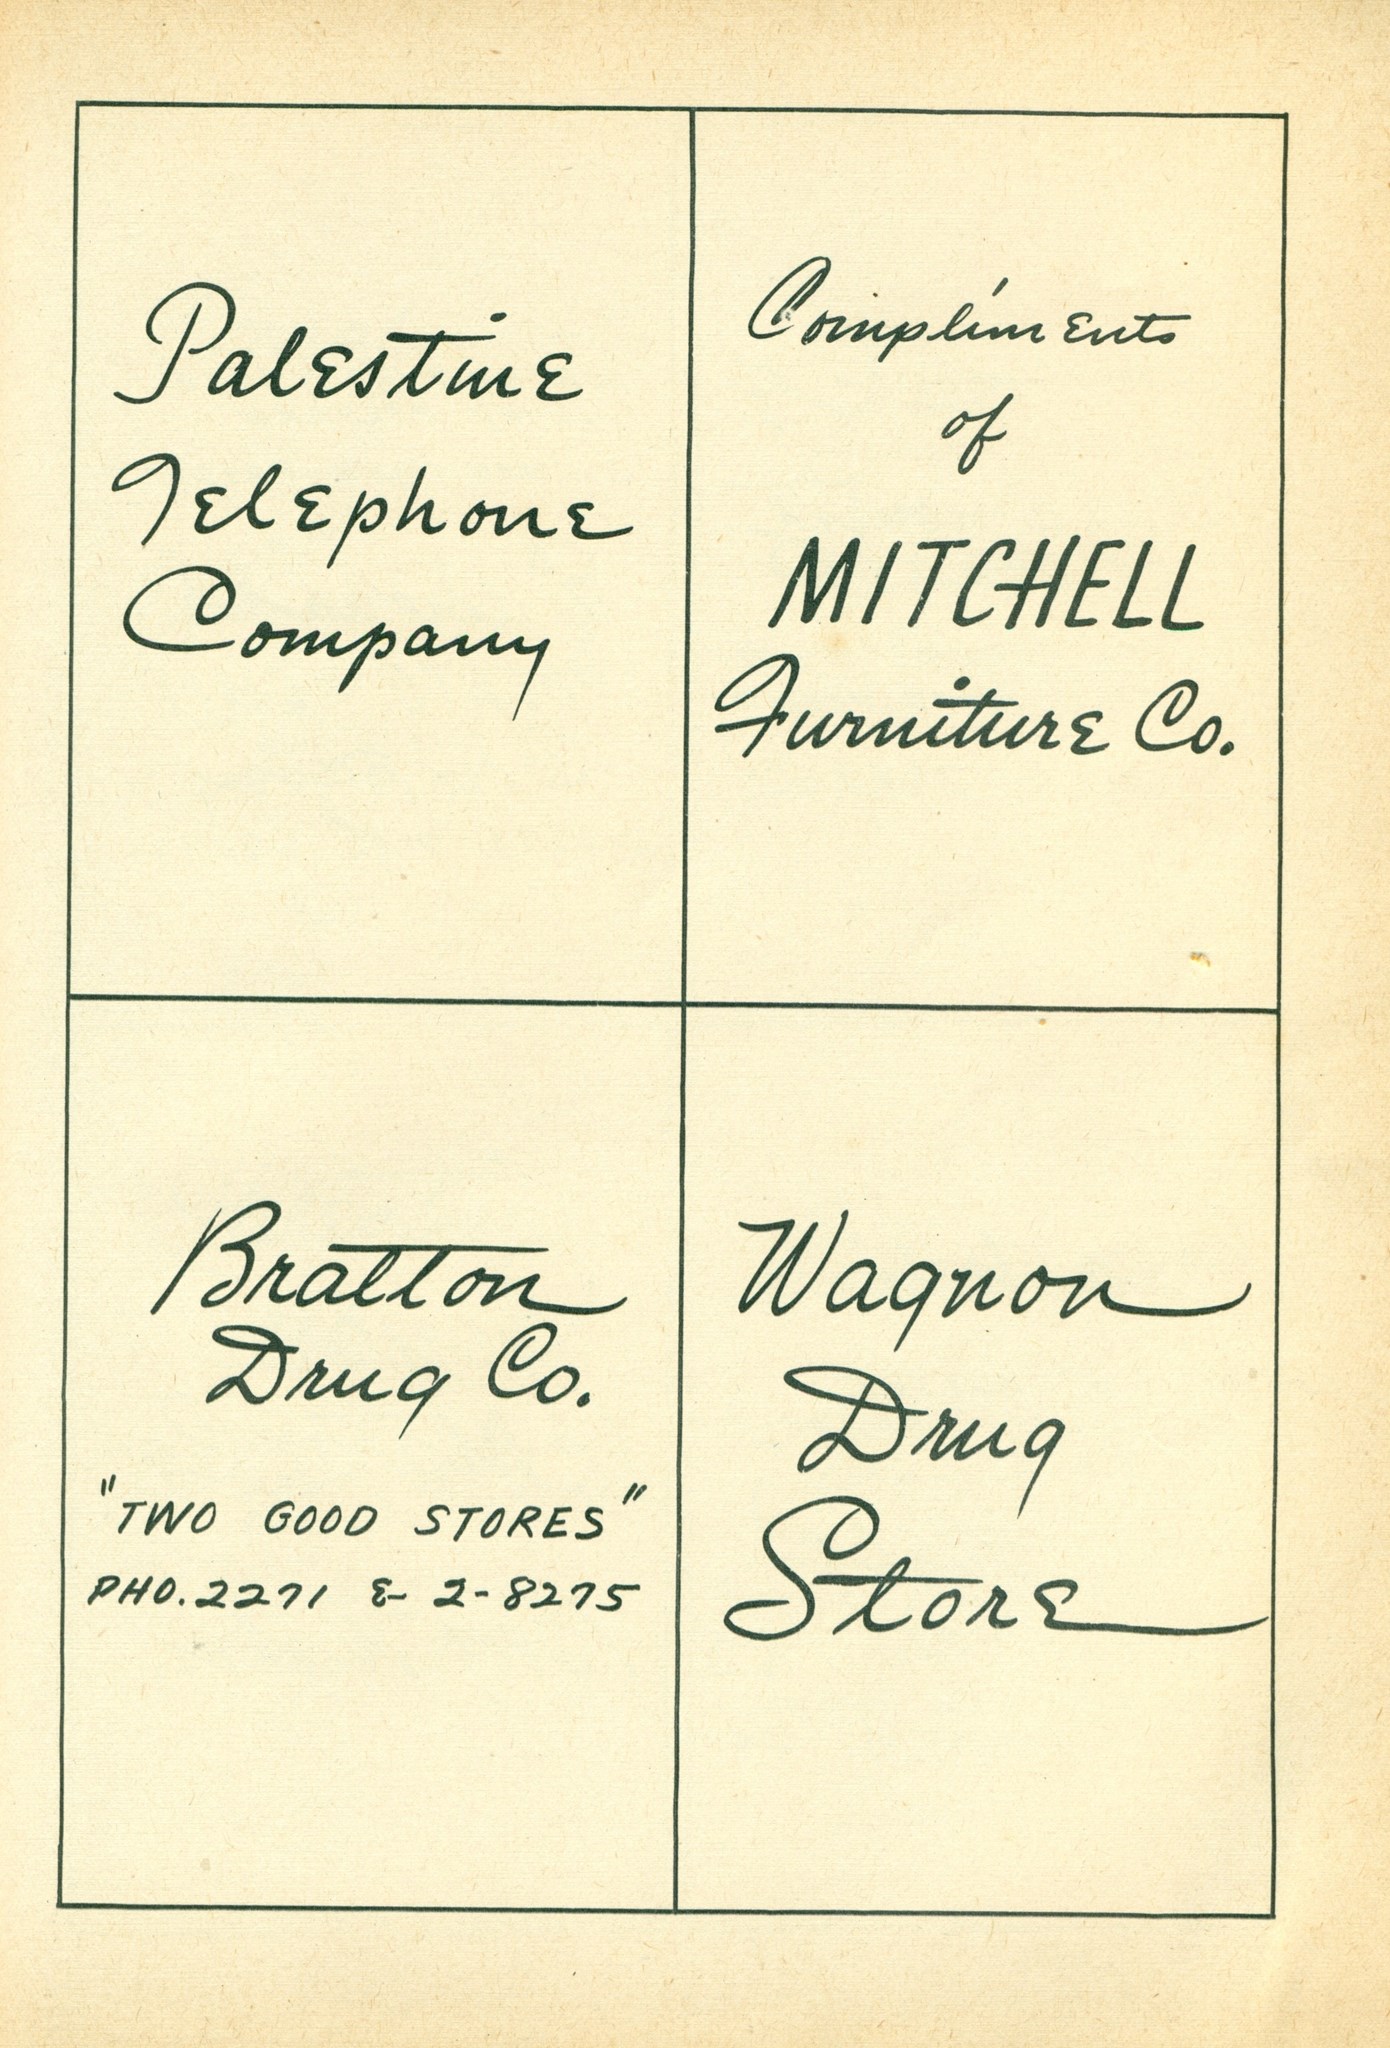 Palestine
Telephone
Company
Compliments
of
MITCHELL
Furniture Co.
Bratton
Drug Co.
"TWO GOOD STORES"
PHO. 2271 & 2-8275
Wagnon
Drug
Store